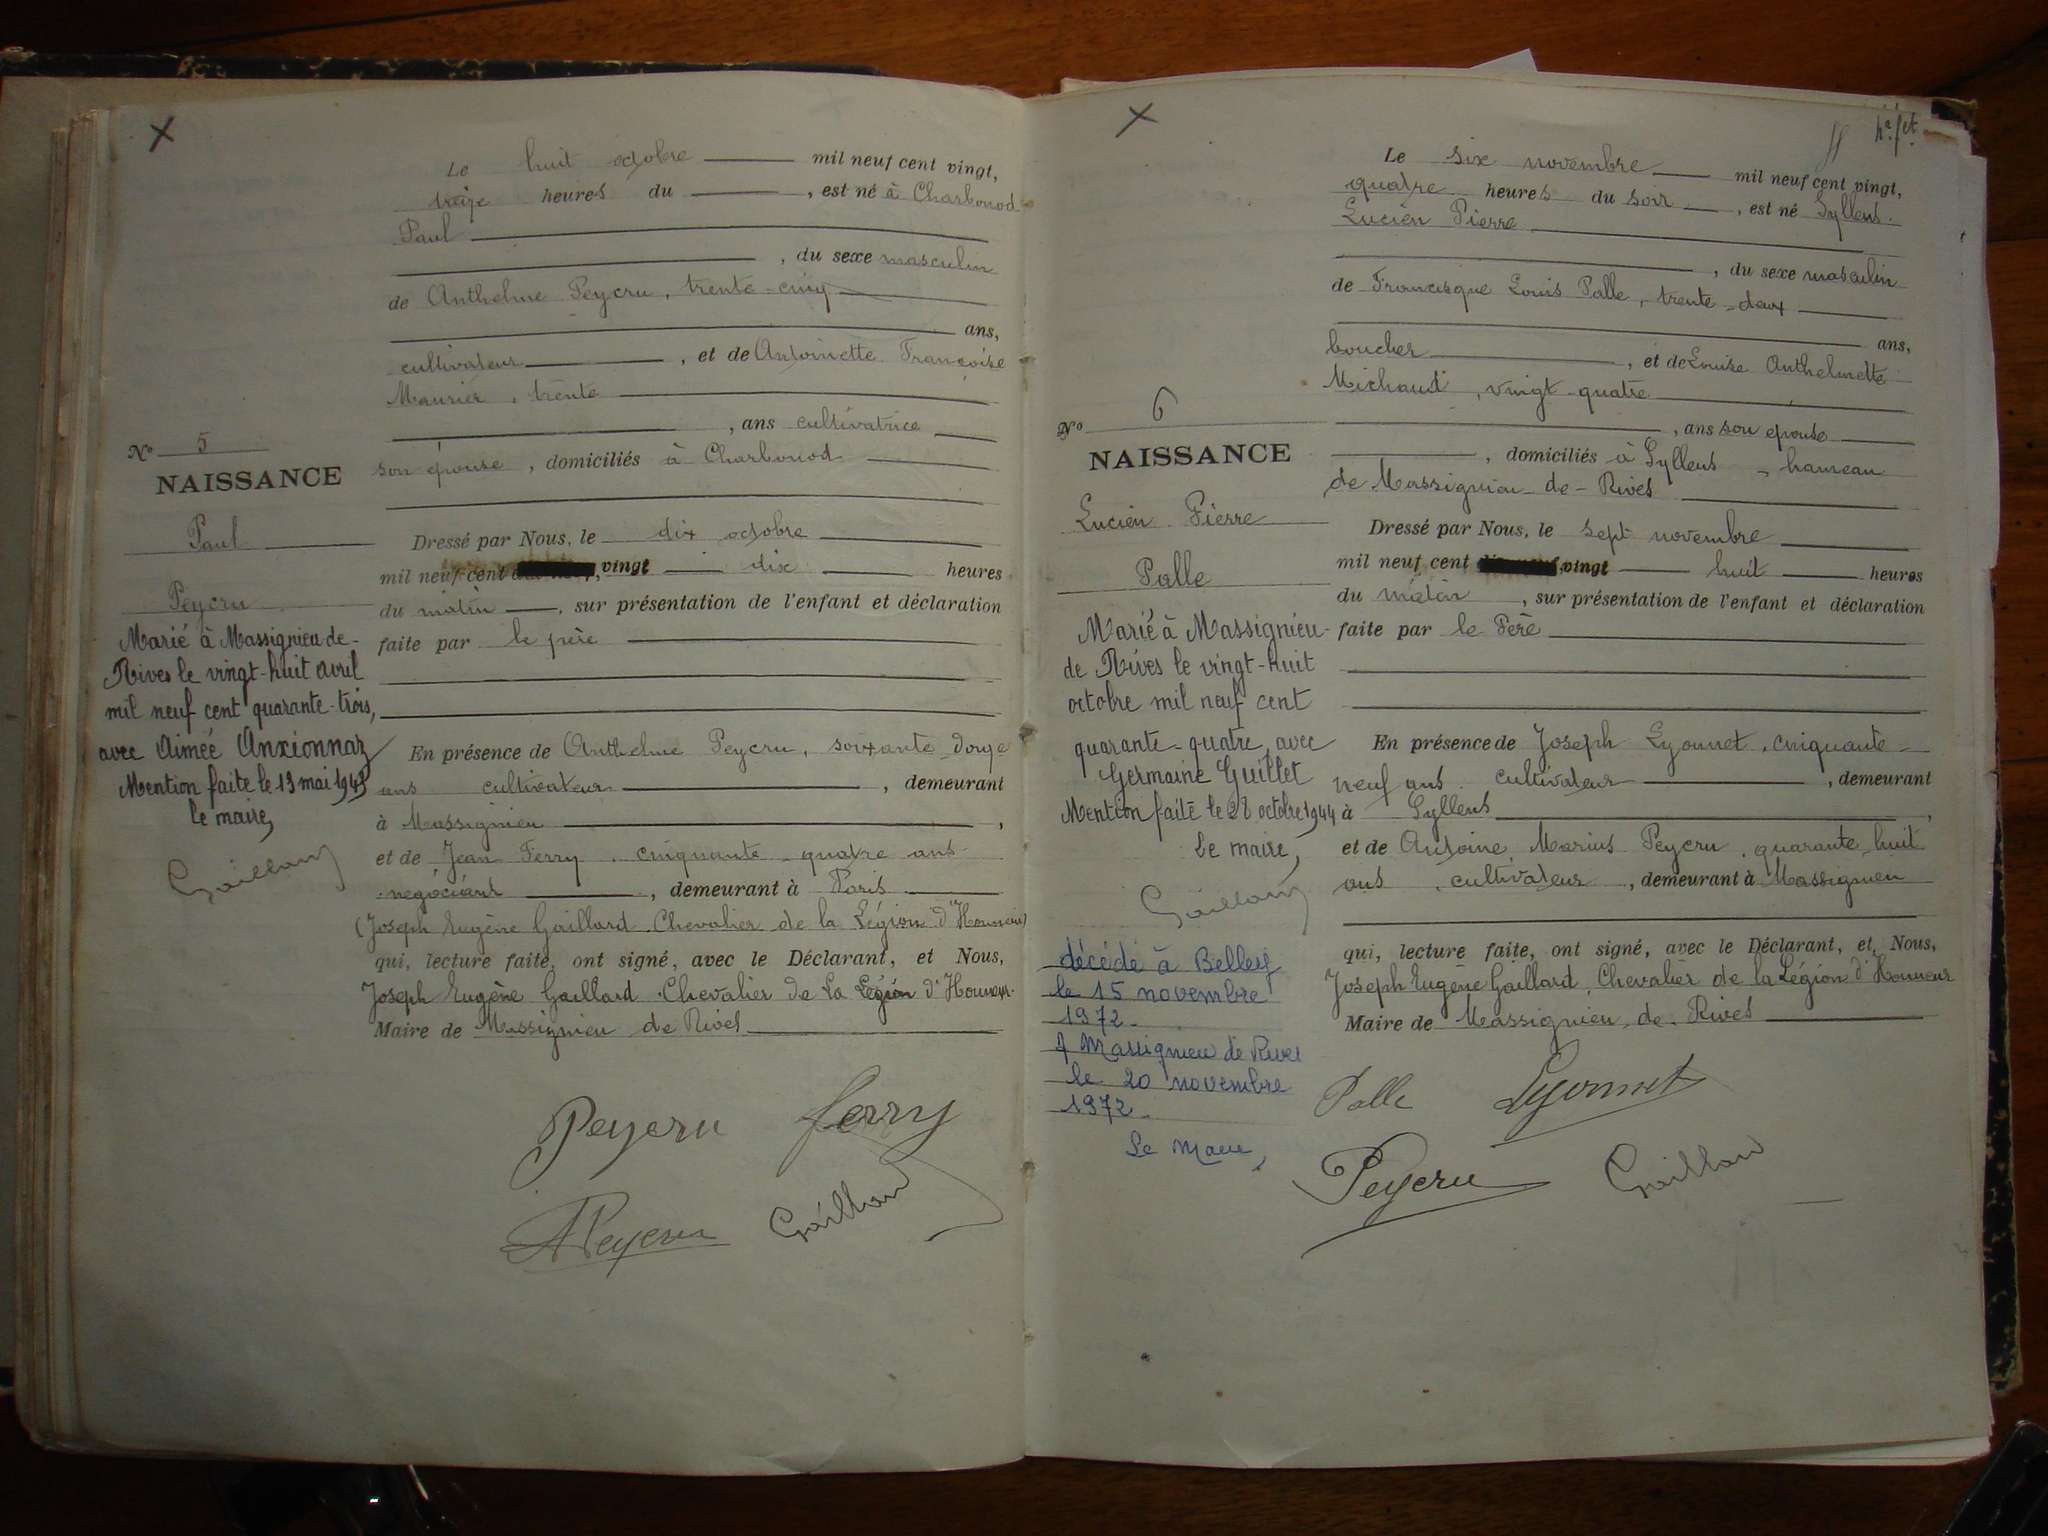 X
Le huit octobre mil neuf cent vingt,
treize heures du , est né à Charbonod
Paul
, du sexe masculin
de Anthelme Peycru, trente-cinq
ans,
cultivateur , et de Antoinette Françoise
Maurier, trente
, ans cultivatrice
son épouse , domiciliés à Charbonod
No 5
NAISSANCE
Paul
Peycru
Marié à Massignieu de-
Rives le vingt-huit avril
mil neuf cent quarante-trois,
avec Aimée Anxionnaz
Mention faite le 13 mai 1943
le maire,
Gaillard
Dressé par Nous, le dix octobre
mil neuf cent vingt dix heures
du matin , sur présentation de l'enfant et déclaration
faite par le père
En présence de Anthelme Peycru, soixante-douze
ans cultivateur , demeurant
à Massignieu ,
et de Jean Ferry, cinquante-quatre ans
négociant , demeurant à Paris
(Joseph Eugène Gaillard Chevalier de la Légion d'Honneur)
qui, lecture faite, ont signé, avec le Déclarant, et Nous,
Joseph Eugène Gaillard Chevalier de La Légion d'Honneur
Maire de Massignieu de Rives
Peycru Ferry
A Peycru Gaillard
X
Le six novembre mil neuf cent vingt,
quatre heures du soir , est né Lyllens
Lucien Pierre
, du sexe masculin
de Francisque Louis Palle, trente-deux
ans,
boucher , et de Louise Anthelmette
Michaud, vingt-quatre
, ans son épouse
, domiciliés à Lyllens - hameau
de Massignieu-de-Rives
No 6
NAISSANCE
Lucien Pierre
Palle
Marié à Massignieu-
de Rives le vingt-huit
octobre mil neuf cent
quarante-quatre avec
Germaine Guillet
Mention faite le 28 octobre 1944
Le maire,
Gaillard
décédé à Belley
le 15 novembre
1972.
A Massignieu de Rives
le 20 novembre
1972.
Le Maire,
Dressé par Nous, le sept novembre
mil neuf cent vingt huit heures
du matin , sur présentation de l'enfant et déclaration
faite par le Père
En présence de Joseph Lyonnet, cinquante-
neuf ans cultivateur , demeurant
à Lyllens ,
et de Antoine Marius Peycru, quarante-huit
ans, cultivateur , demeurant à Massignieu
qui, lecture faite, ont signé, avec le Déclarant, et Nous,
Joseph Eugène Gaillard, Chevalier de la Légion d'Honneur
Maire de Massignieu-de-Rives
Palle Lyonnet
Peycru Gaillard